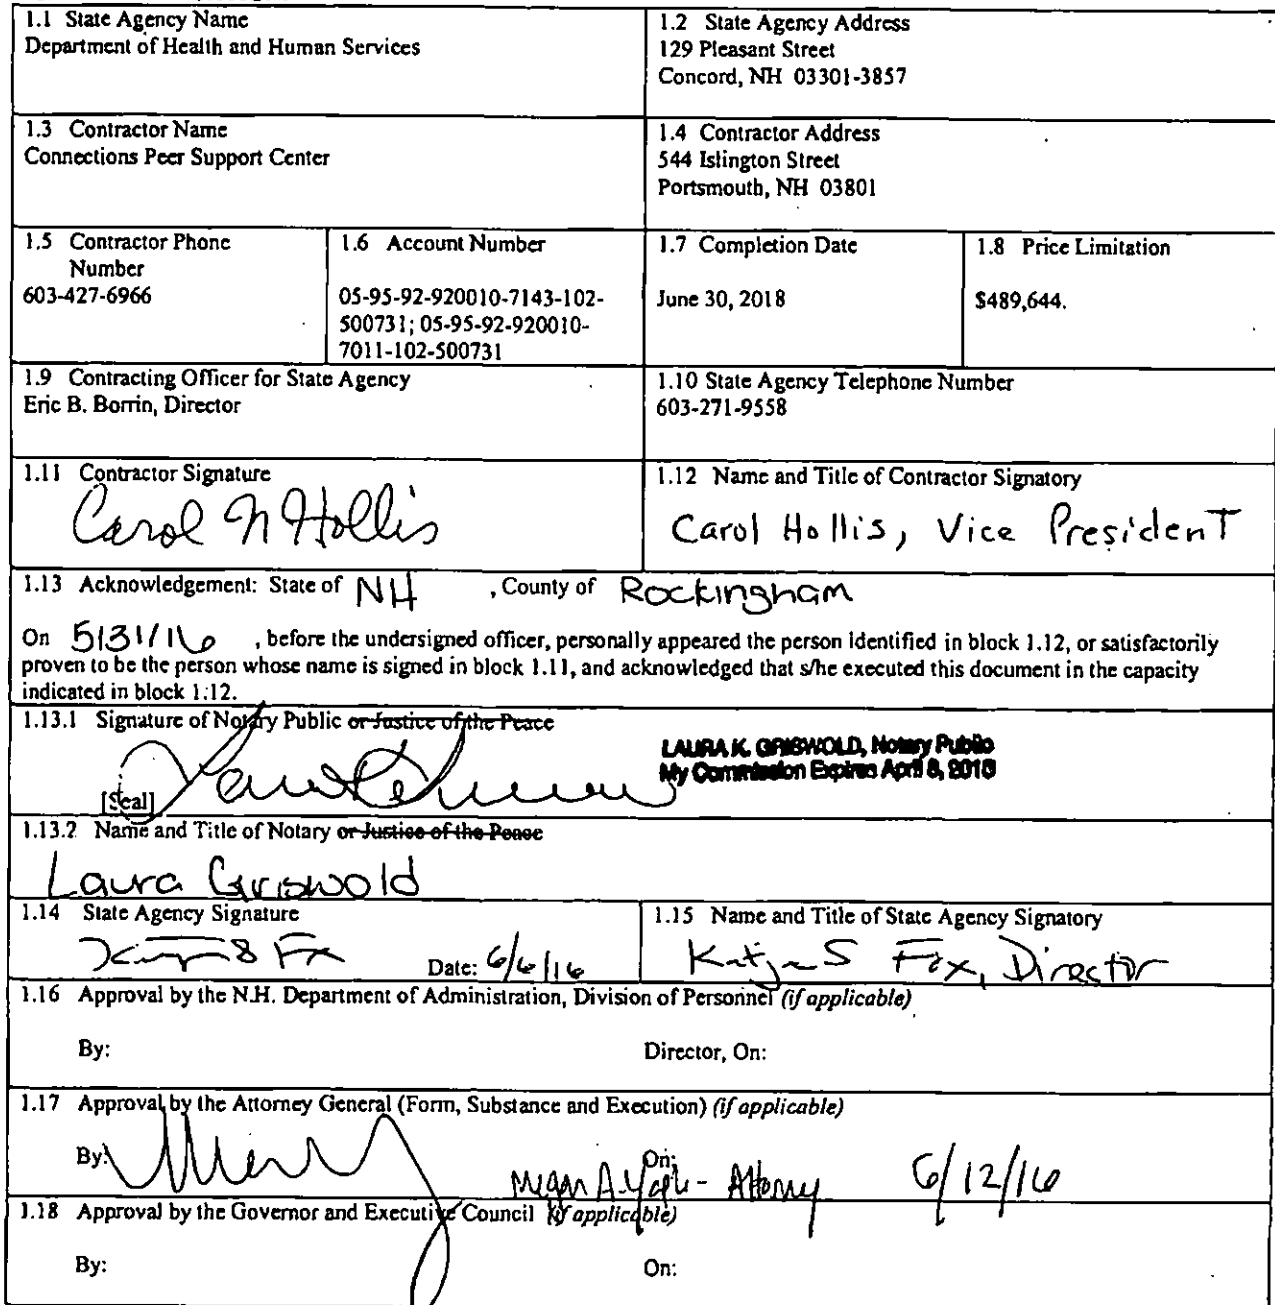 1.1 State Agency Name
Department of Health and Human Services
1.2 State Agency Address
129 Pleasant Street
Concord, NH 03301-3857
1.3 Contractor Name
Connections Peer Support Center
1.4 Contractor Address
544 Islington Street
Portsmouth, NH 03801
1.5 Contractor Phone
Number
603-427-6966
1.6 Account Number
05-95-92-920010-7143-102-
500731; 05-95-92-920010-
7011-102-500731
1.7 Completion Date
June 30, 2018
1.8 Price Limitation
$489,644.
1.9 Contracting Officer for State Agency
Eric B. Borrin, Director
1.10 State Agency Telephone Number
603-271-9558
1.11 Contractor Signature
Carol N Hollis
1.12 Name and Title of Contractor Signatory
Carol Hollis, Vice President
1.13 Acknowledgement: State of NH , County of Rockingham
On 5/31/16 , before the undersigned officer, personally appeared the person identified in block 1.12, or satisfactorily
proven to be the person whose name is signed in block 1.11, and acknowledged that s/he executed this document in the capacity
indicated in block 1.12.
1.13.1 Signature of Notary Public or Justice of the Peace
LAURA K. GRISWOLD, Notary Public
My Commission Expires April
[Seal]
1.13.2 Name and Title of Notary or Justice of the Peace
Laura Griswold
1.14 State Agency Signature
Date: 6/6/16
1.15 Name and Title of State Agency Signatory
Katja S Fox, Director
1.16 Approval by the N.H. Department of Administration, Division of Personnel (if applicable)
By:
Director, On:
1.17 Approval by the Attorney General (Form, Substance and Execution) (if applicable)
By:
On:
Megan A. - Attorney 6/12/16
1.18 Approval by the Governor and Executive Council (if applicable)
By:
On: